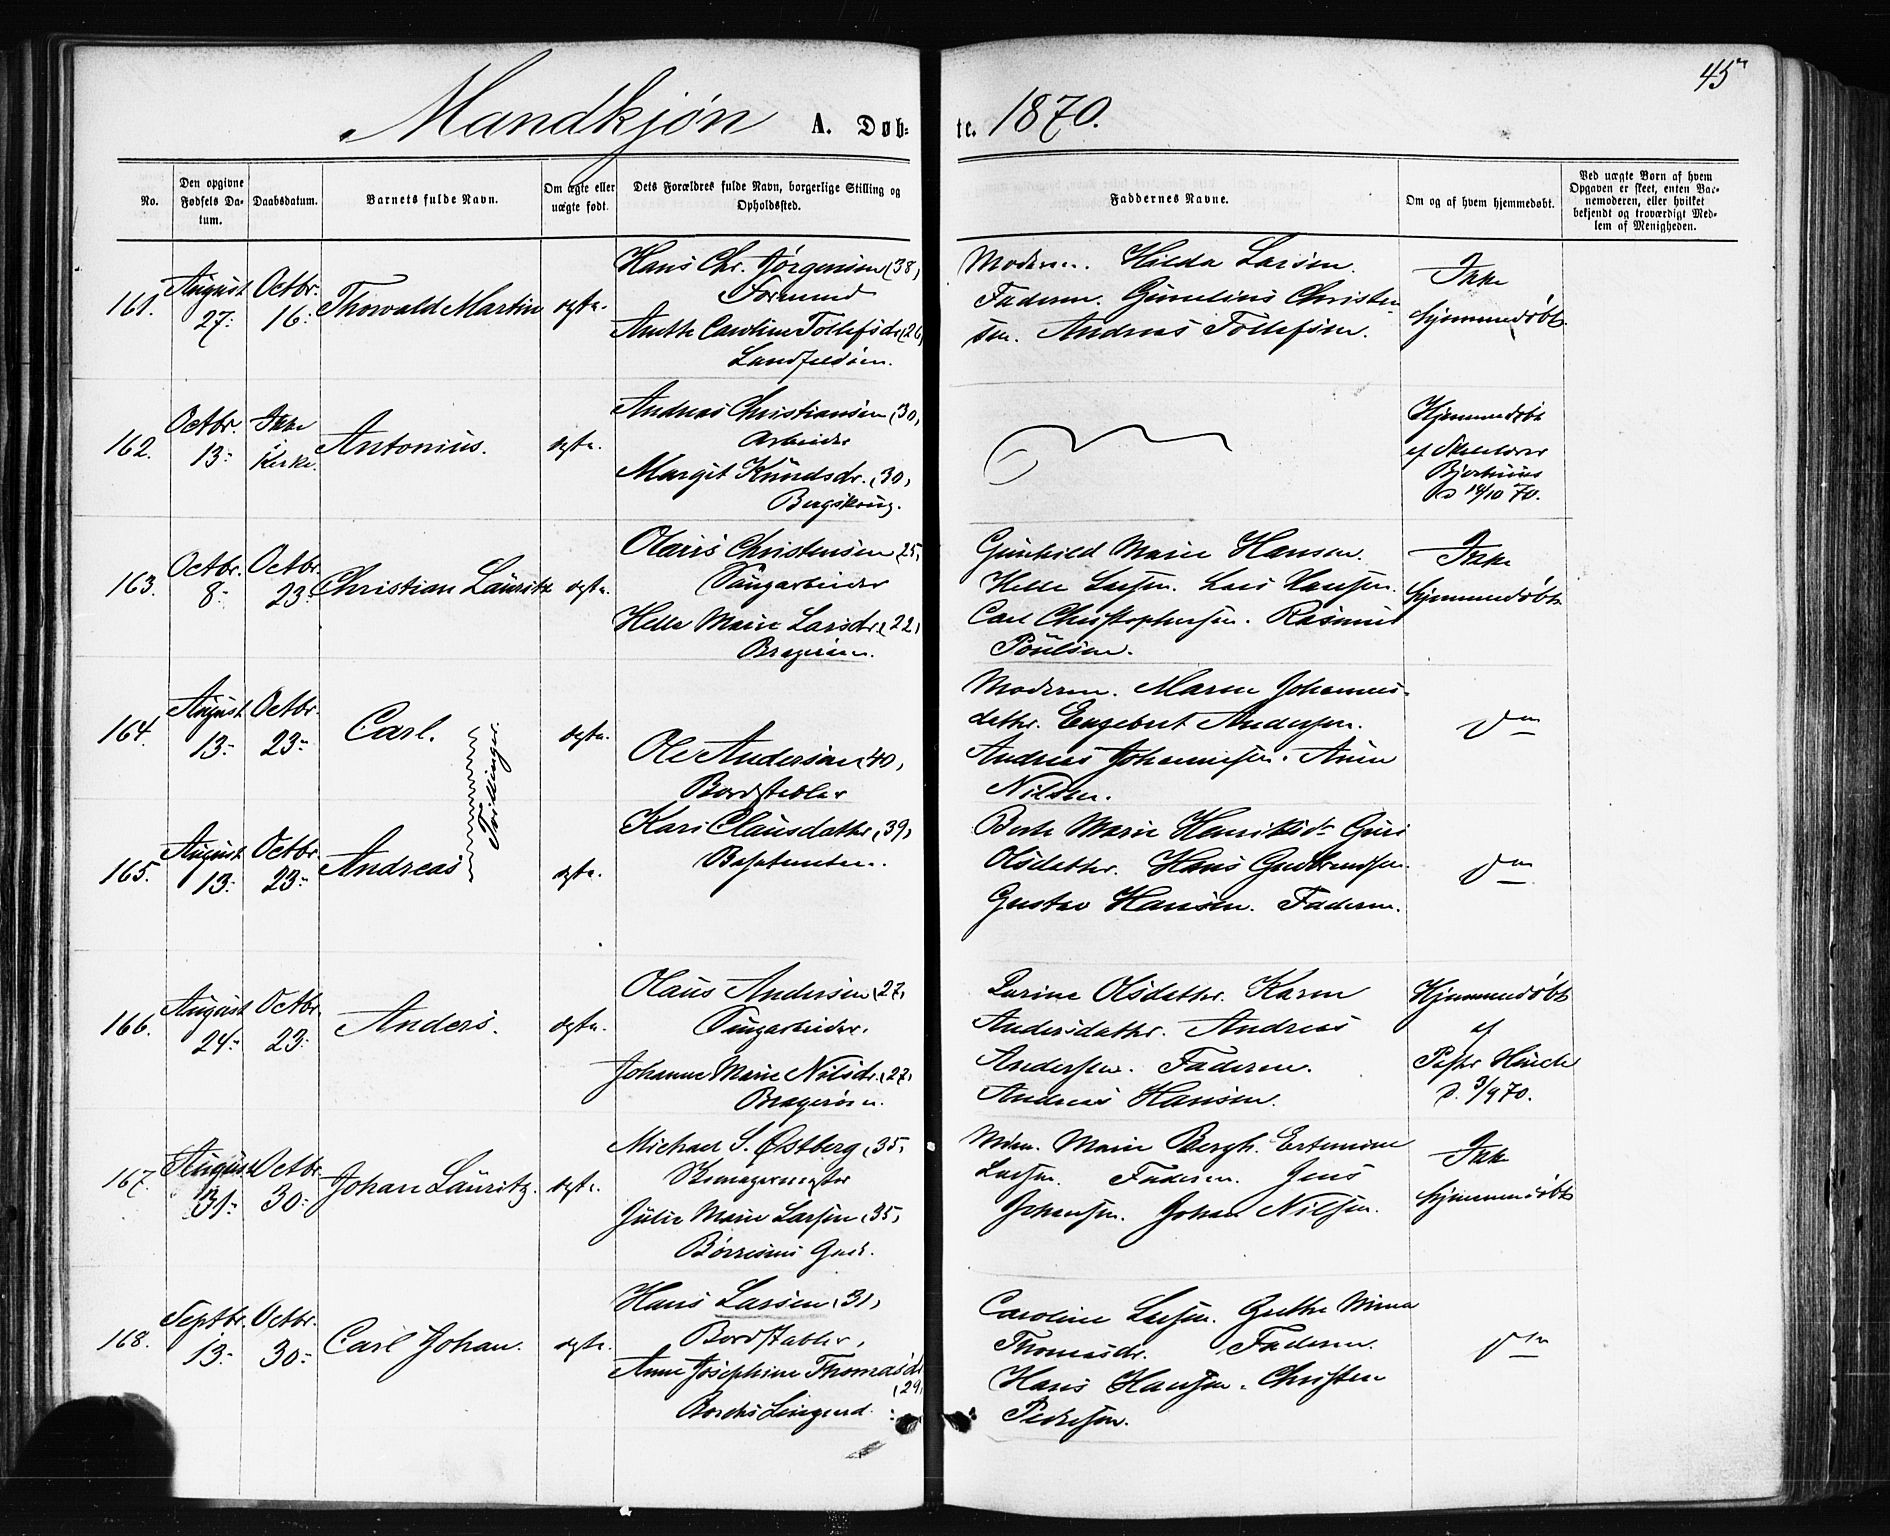 45
Mandkjøn A. Døb-
te. 1870.
No.
Den opgivne Fødsels Da-
tum.
Daabsdatum.
Barnets fulde Navn.
Om ægte eller
uægte født.
Dets Forældres fulde Navn, borgerlige Stilling og
Opholdssted.
Faddernes Navne.
Om og af hvem hjemmedøbt.
Ved uægte Børn af hvem
Opgaven er skeet, enten Bar-
nemoderen, eller hvilket
bekjendt og troværdigt Med-
lem af Menigheden.
161.
August
27.
Octbr.
16.
Thorvald Martin
ægte.
Hans Chr. Jørgensen (38)
Formand
Anethe Caroline Tollefsdr (26)
Landfaldøen.
Moderen. Hilda Larsen.
Faderen. Christen-
sen. Andreas Tollefsen.
Ikke
hjemmedøbt.
162.
Octbr.
13.
Ikke
i
Kirke.
Antonius.
ægte.
Andreas Christiansen (30)
Arbeider
Margit Knudsdr. (30)
Bergskoug.
Hjemmedøbt
af
D. 14/10 70.
163.
Octbr.
8.
Octbr.
23.
Christian Lauritz
ægte.
Olaus Christensen (25)
Saugarbeider
Helle Marie Larsdr. (22)
Bragerøen.
Gunhild Marie Hansen.
Helle Larsen. Lars Hansen.
Carl Christophersen. Rasmus
Poulsen.
Ikke
hjemmedøbt.
164.
August
13.
Octbr.
23.
Carl.
Tvillinger.
ægte.
Ole Andersen (40)
Bordstabler
Kari Clausdatter (39)
Moderen. Maren Johannes-
datter. Engebret Andersen.
Andreas Johannesen. Anne
Nilsen.
Do
165.
August
13.
Octbr.
23.
Andreas
ægte.
Berthe Marie Henriksdr. Guri
Olsdatter. Hans Gudbrandsen.
Gustav Hansen. Faderen.
Do
166.
August
24.
Octbr.
23.
Anders.
ægte.
Olaus Andersen (27)
Saugarbeider.
Johanne Marie Nilsdr. (27)
Bragerøen.
Olsdatter. Karen
Andersdatter. Andreas
Andersen. Faderen.
Andreas Hansen.
Hjemmedøbt
af
D. 3/9 70.
167.
August
31.
Octbr.
30.
Johan Lauritz.
ægte.
Michael S. Østberg (35)
Skomagermester
Julie Marie Larsen (35)
Børresens Gade.
Mdrn. Marie Bergh.
Larsen. Faderen. Jens
Johansen. Johan Nilsen.
Ikke
hjemmedøbt
168.
Septbr.
13.
Octbr.
30.
Carl Johan.
ægte.
Hans Larsen (31)
Bordstabler.
Anne Josephine Thomasdr
(29)
Caroline Larsen. Grethe
Thomasdr. Faderen.
Hans Hansen. Christen
Pedersen.
Do